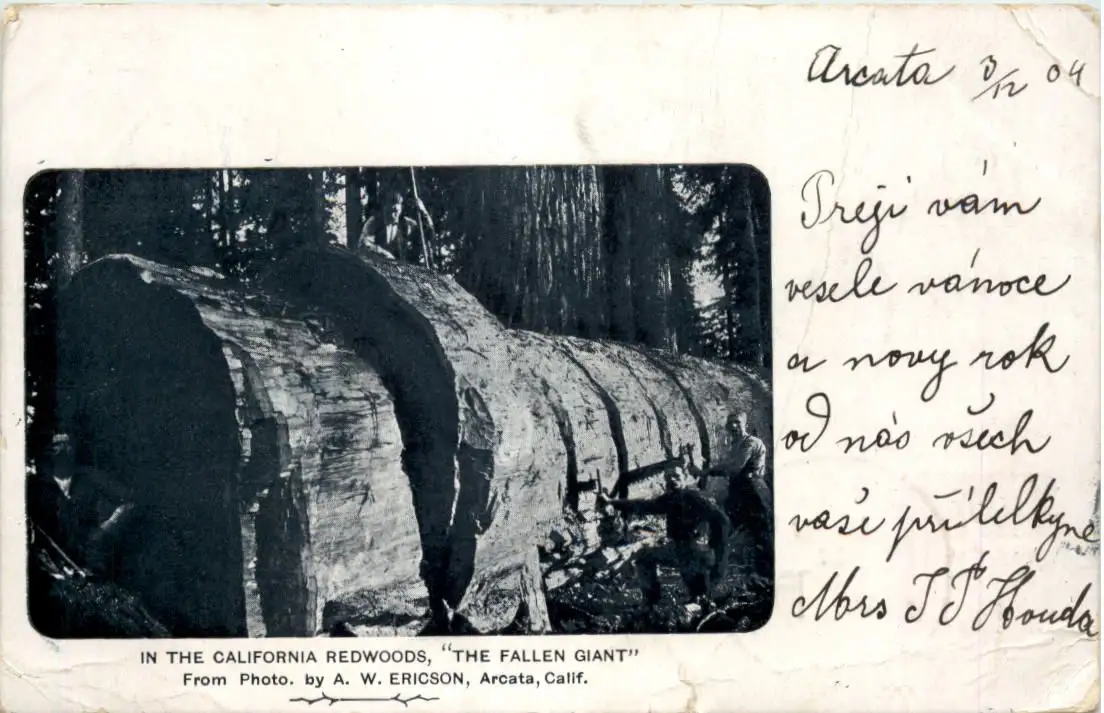 Arcata 3/12 04
Preji vám
vesele vánoce
a novy rok
od nás všech
vaše přítelkyne
Mrs J P Honda
IN THE CALIFORNIA REDWOODS, "THE FALLEN GIANT"
From Photo. by A. W. ERICSON, Arcata, Calif.